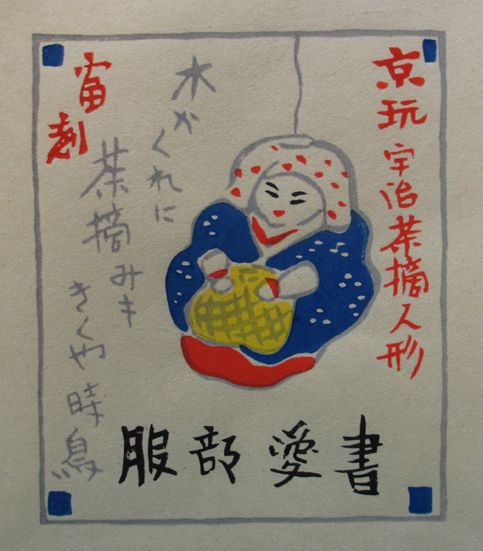 京玩 宇治茶摘人形
木がくれに
茶摘みも
きくや時鳥
服部愛書